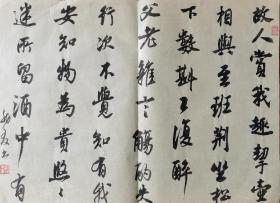 故人賞我趣挈壺
相與至班荊坐松
下數斟已復醉
父老雜言觴酌失
行次不覺知有我
安知物為貴悠々
迷所留酒中有